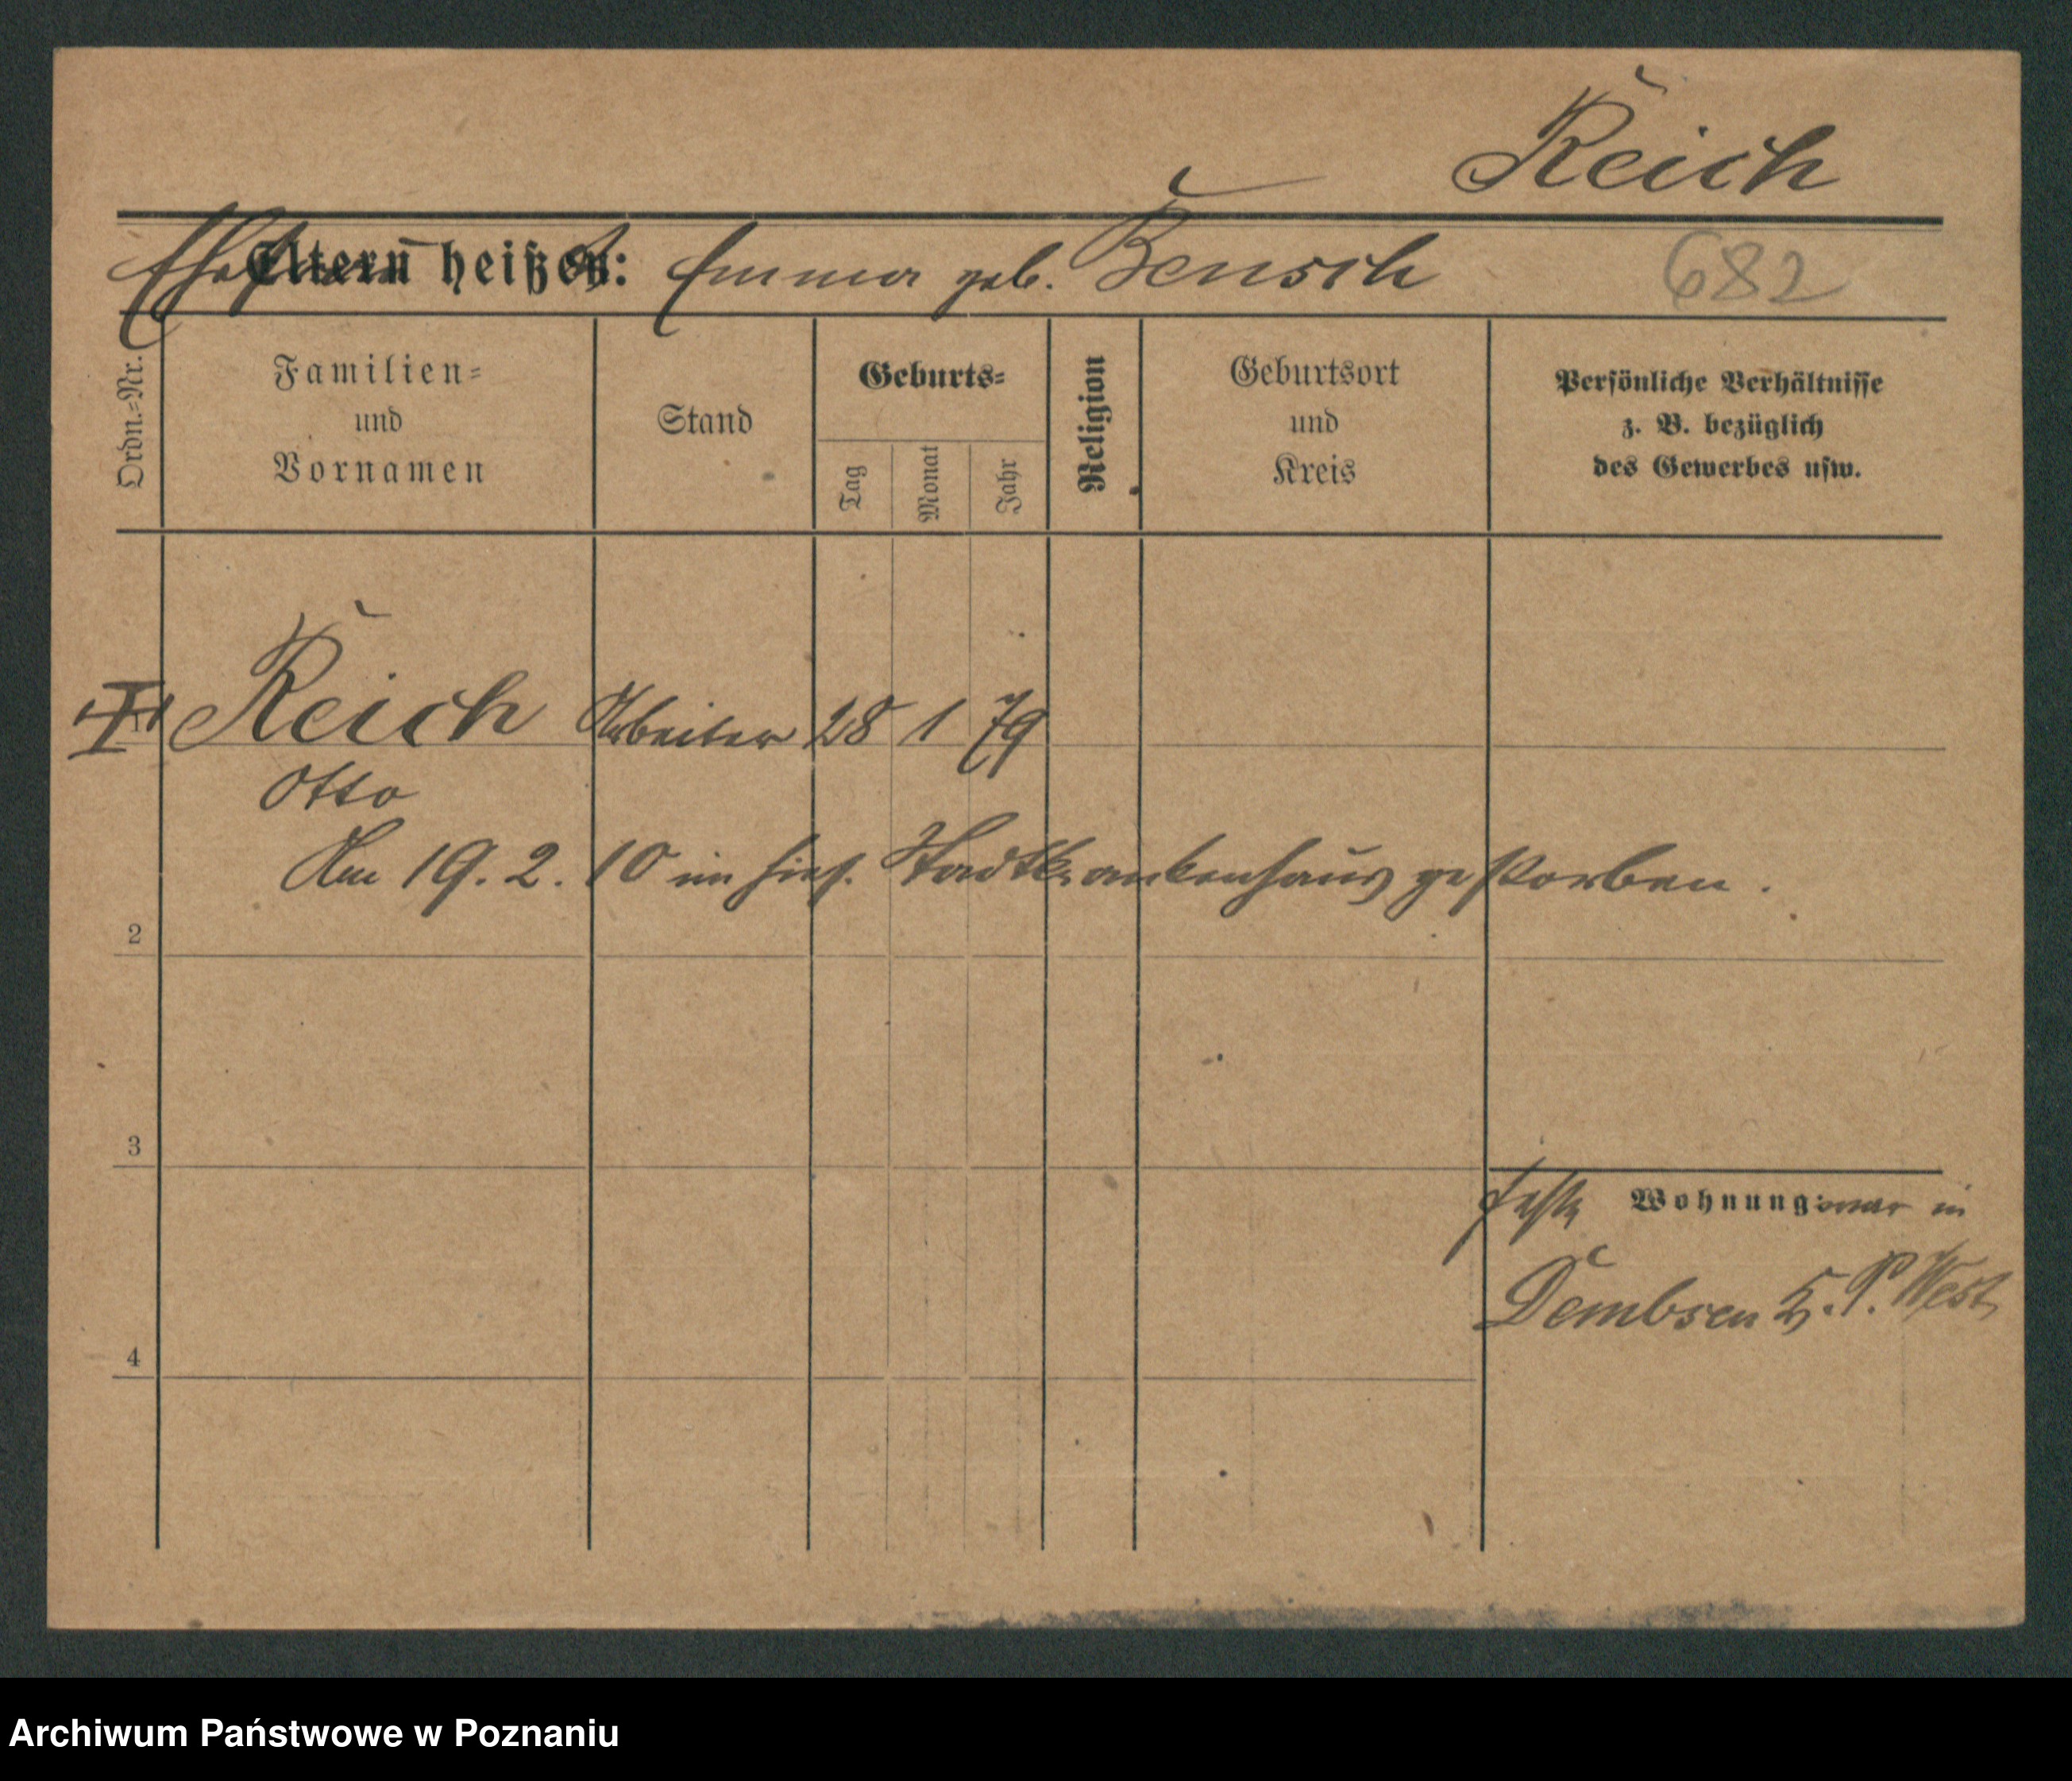 Reich
Ehefrau heißt: Emma geb. Bensch 682
Ordn.=Nr.
Familien=
und
Vornamen
Stand
Geburts=
Tag
Monat
Jahr
Religion
Geburtsort
und
Kreis
Persönliche Verhältnisse
z. B. bezüglich
des Gewerbes usw.
Reich Arbeiter 28 1 79
Otto
Am 19. 2. 10 im hies. Stadtkrankenhaus gestorben.
2
3
feste Wohnung: war in
Dembsen K. P. West
4
Archiwum Państwowe w Poznaniu